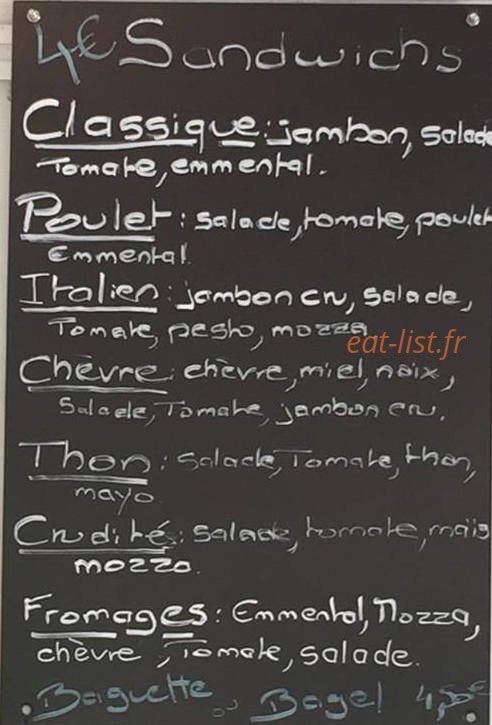 4€ Sandwichs
Classique : jambon, salade
Tomate, emmental.
Poulet : salade, tomate, poulet
Emmental
Italien : jambon cru, salade,
Tomate, pesto, mozza
eat-list.fr
Chèvre : chèvre, miel, noix,
Salade, Tomate, jambon cru.
Thon : salade, Tomate, thon,
mayo
Crudité : salade, tomate, maïs
mozza.
Fromages : Emmental, Mozza,
chèvre, Tomate, salade.
Baguette ou Bagel 4,50€